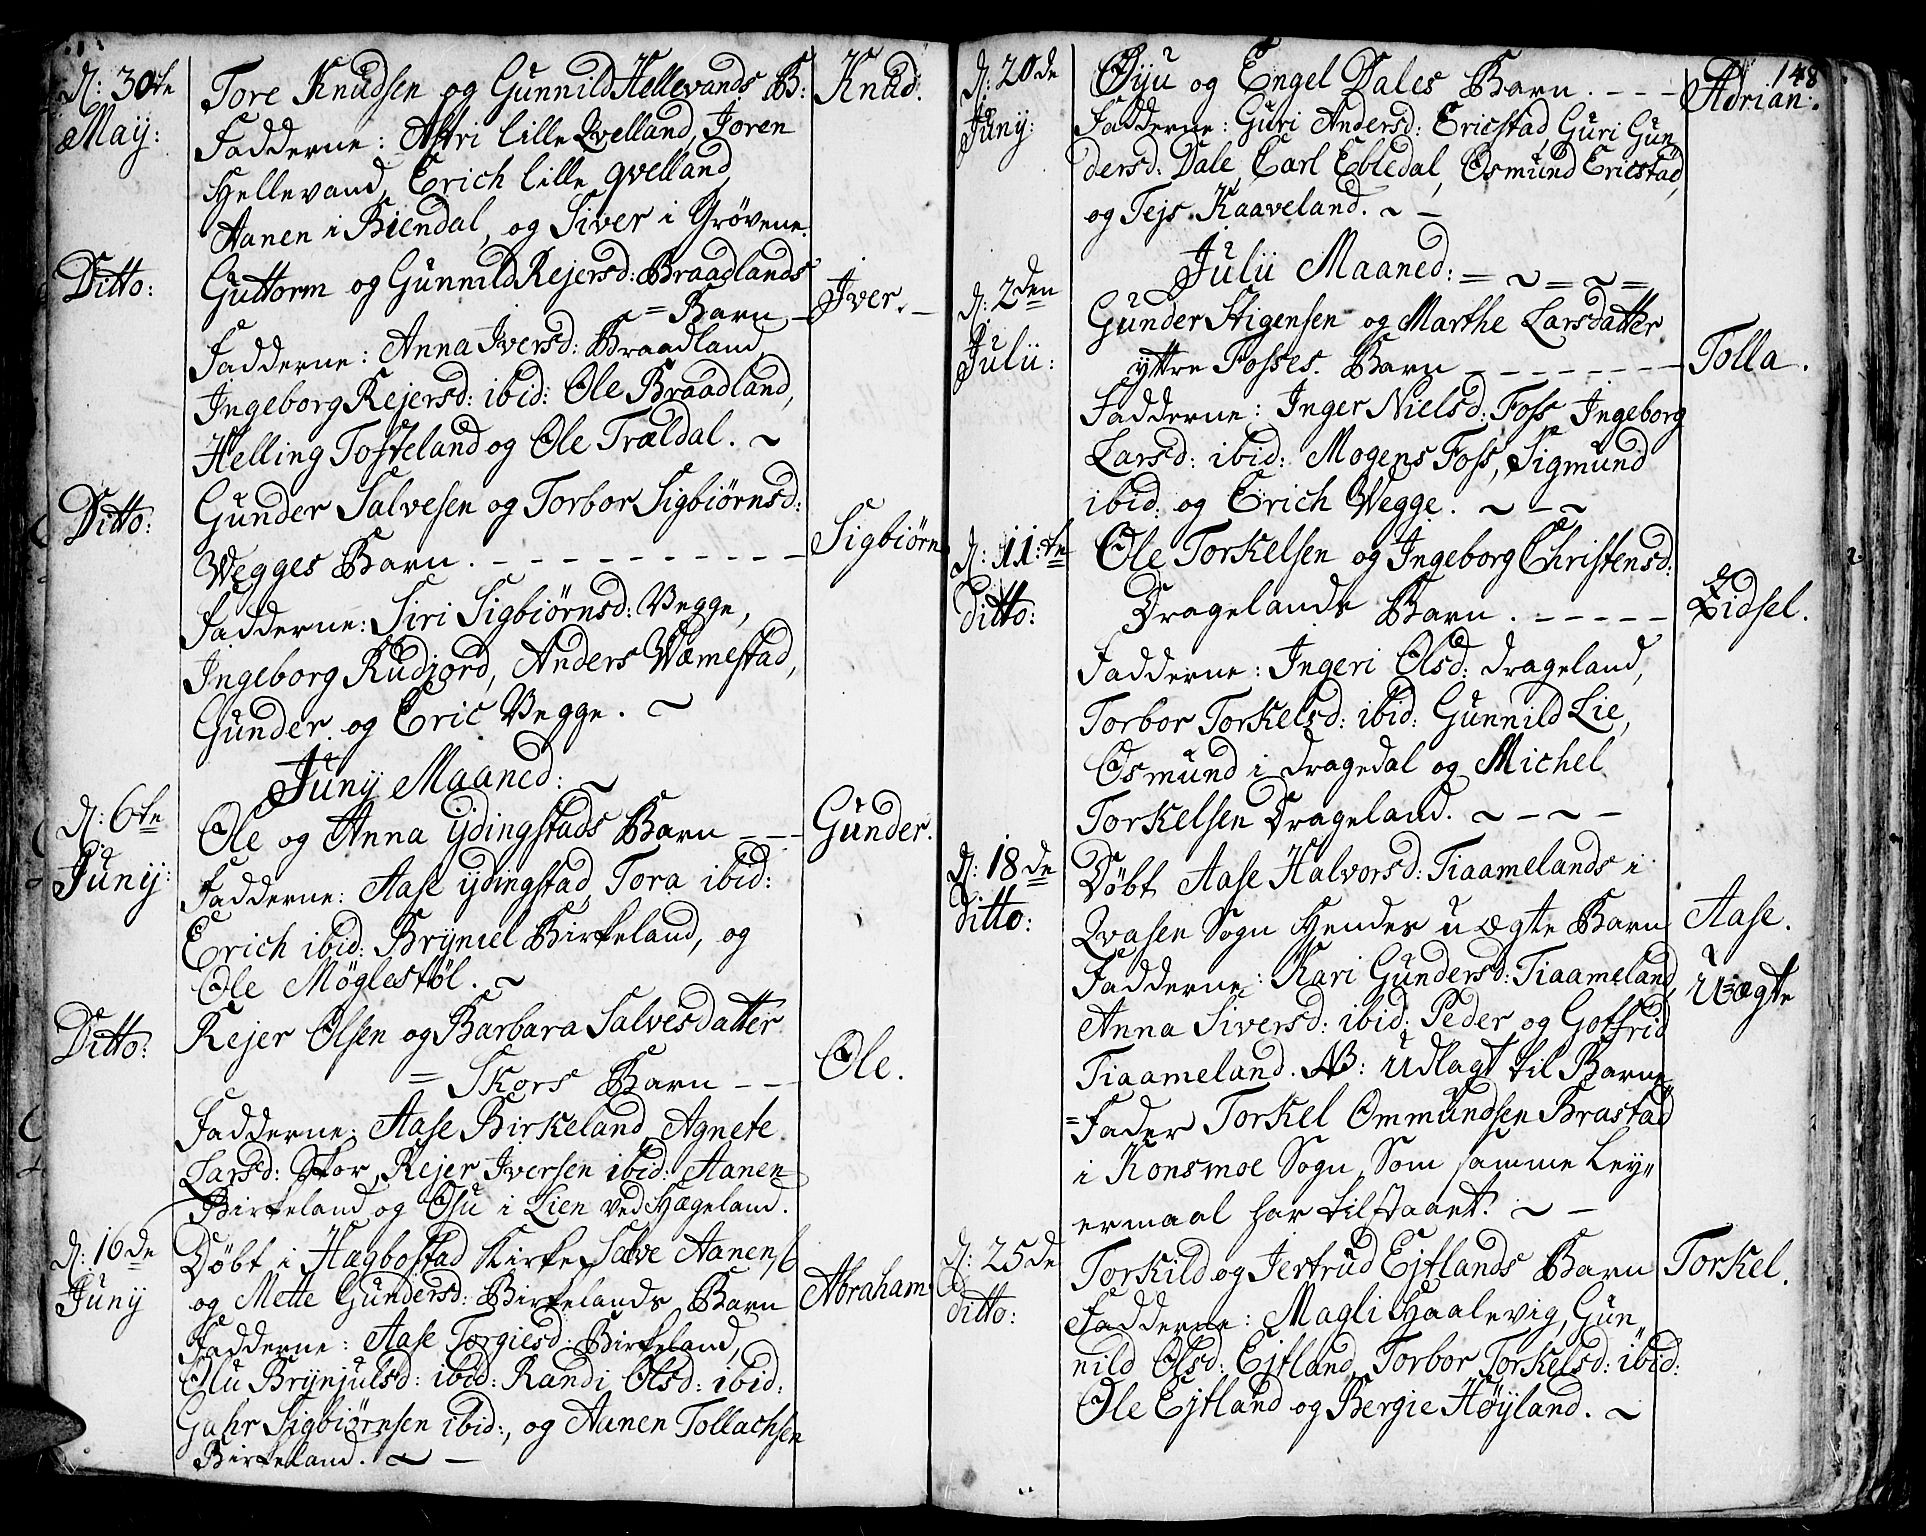 d: 30te Tore Knudsen og Gunnild Hellevands B: Knud.
May: Fadderne: Astri lille Qvelland, Joren
Hellevand, Erich lille qvelland,
Aanen i Biendal, og Siver i Grövene.
Ditto: Guttorm og Gunnild Rejersd: Braadlands
= Barn – Jver. –
Fadderne: Anna Jversd: Braadland,
Ingeborg Rejersd: ibid: Ole Braadland,
Helling Tofteland og Ole Trældal. ~
Ditto: Gunder Salvesen og Torbor Sigbiörnsd:
Wegges Barn. – – – – – – – – – – Sigbiörn
Fadderne: Siri Sigbiörnsd: Vegge,
Ingeborg Rudjord, Anders Wæmestad,
Gunder og Eric Vegge. ~
Juny Maaned: ~
d: 6te Ole og Anna ydingstads Barn – – – Gunder.
Juny: Fadderne: Aase ydingstad, Tora ibid:
Erich ibid: Bryniel Birkeland, og
Ole Möglestöl. ~
Ditto: Rejer Olsen og Barbara Salvesdatter
= Skors Barn – – – Ole.
Fadderne: Aase Birkeland, Agnete
Larsd: Skor, Rejer Jversen ibid: Aanen
Birkeland og Osu i Lien ved Hægeland.
d: 16de Döbt i Hægbostad Kirke, Salve Aanens:
Juny og Mette Gundersd: Birkelands Barn Abraham
Fadderne: Aase Torgiesd: Birkeland,
Olu Brynjulsd: ibid: Randi Olsd: ibid:
Gahr Sigbiörnsen ibid:, og Aanen Tollachsen
Birkeland. ~ –
148
d: 20de Öyu og Engel Dales Barn. – – – Adrian:
Juny: Fadderne: Guri Andersd: Ericstad, Guri Gun
dersd: Dale, Carl Ebledal, Osmund Ericstad,
og Tejs Kaaveland. ~ –
Julii Maaned: = ~ = ~ =
d: 2den Gunder Stigensen og Marthe Larsdatter
Julii: yttre Fosses Barn – – – – – – – – Tolla.
Fadderne: Inger Nielsd: Foss Ingeborg
Larsd: ibid: Mogens Foss, Sigmund
ibid: og Erich Wegge. ~ – ~
d: 11:te Ole Torkelsen og Ingeborg Christensd:
Ditto: Dragelands Barn. – – – – – Eidsel.
Fadderne: Ingeri Olsd: Drageland,
Torbor Torkelsd: ibid: Gunnild Lie,
Osmund i Dragedal og Michel
Torkelsen Drageland. ~ – ~ –
d: 18de Döbt Aase Halvorsd: Tiaamelands i
ditto: Qvasen Sogn Hendes uægte Barn Aase.
Fadderne: Kari Gundersd: Tiaameland, Uægte
Anna Siversd: ibid: Peder og Gotfrid
Tiaameland. NB: Udlagt til Barne
=Fader Torkel Ommundsen Brastad
i Konsmoe Sogn, Som samme Ley„
ermaal har tilstaaet. ~ –
d: 25de Torkild og Jertrud Ejtlands Barn Torkel.
ditto: Fadderne: Magli Haalevig, Gun„
nild Olsd: Ejtland, Torbor Torkelsd: ibid:
Ole Ejtland og Bergie Höyland. ~